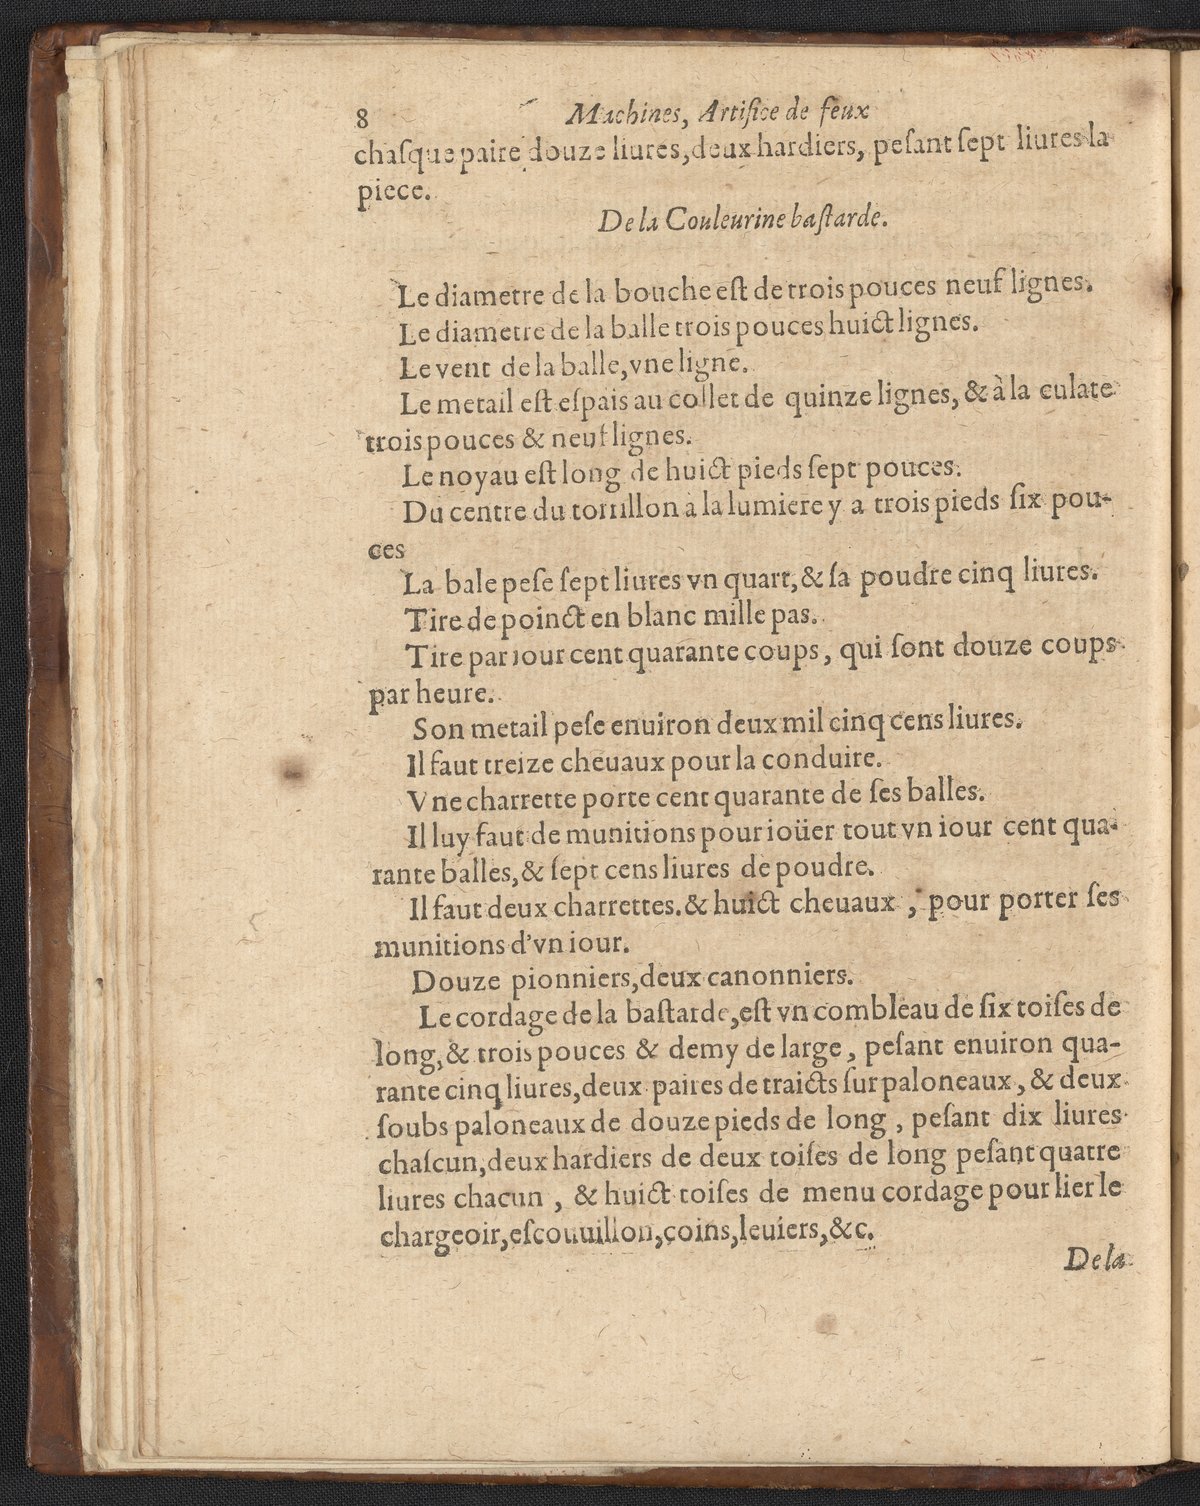 8 Machines, Artifice de feux
chaſque paire douze liures, deux hardiers, peſant ſept liures la
piece.
De la Couleurine baſtarde.
Le diametre de la bouche eſt de trois pouces neuf lignes.
Le diametre de la balle trois pouces huict lignes.
Le vent de la balle, vne ligne.
Le metail eſt eſpais au collet de quinze lignes, & à la culate
trois pouces & neuf lignes.
Le noyau eſt long de huict pieds ſept pouces.
Du centre du torrillon à la lumiere y a trois pieds ſix pou-
ces
La bale peſe ſept liures vn quart, & ſa poudre cinq liures.
Tire de poinct en blanc mille pas.
Tire par iour cent quarante coups, qui ſont douze coups
par heure.
Son metail peſe enuiron deux mil cinq cens liures.
Il faut treize cheuaux pour la conduire.
Vne charrette porte cent quarante de ſes balles.
Il luy faut de munitions pour ioüer tout vn iour cent qua-
rante balles, & ſept cens liures de poudre.
Il faut deux charrettes. & huict cheuaux, pour porter ſes
munitions d'vn iour.
Douze pionniers, deux canonniers.
Le cordage de la baſtarde, eſt vn combleau de ſix toiſes de
long, & trois pouces & demy de large, peſant enuiron qua-
rante cinq liures, deux paires de traicts ſur paloneaux, & deux
ſoubs paloneaux de douze pieds de long, peſant dix liures
chaſcun, deux hardiers de deux toiſes de long peſant quatre
liures chacun, & huict toiſes de menu cordage pour lier le
chargeoir, eſcouuillon, coins, leuiers, &c.
De la